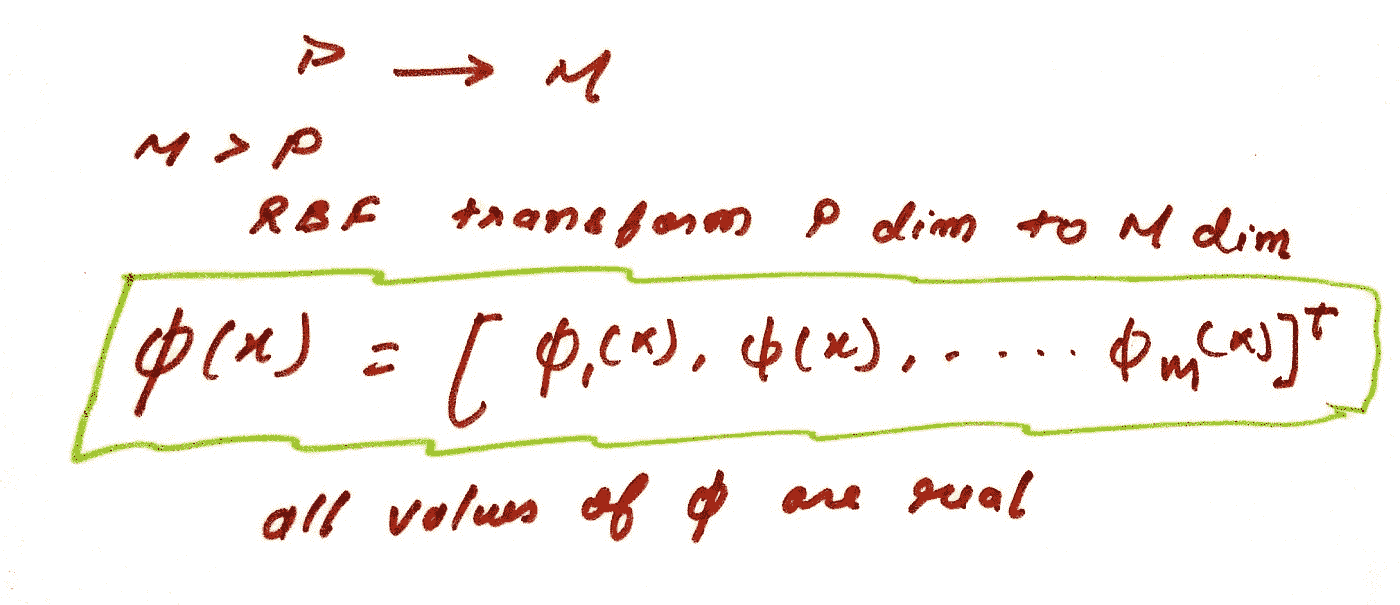 P → M
M > P
RBF transform P dim to M dim
ϕ(x) = [ ϕ₁(x), ϕ(x), ..... ϕₘ(x)]ᵀ
all values of ϕ are real